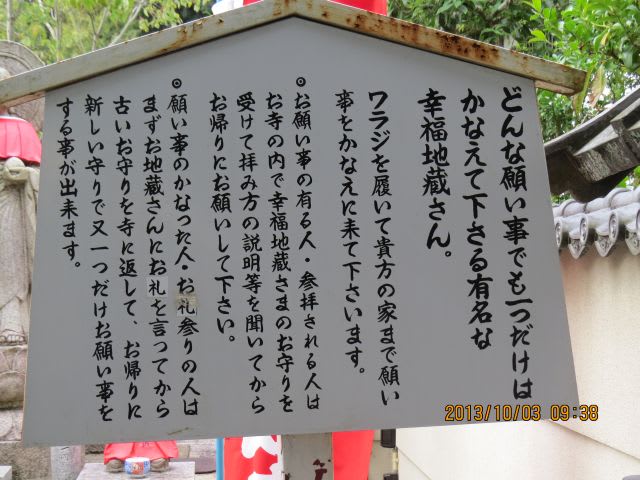 どんな願い事でも一つだけは
かなえて下さる有名な
幸福地蔵さん。
ワラジを履いて貴方の家まで願い
事をかなえに来て下さいます。
⦿お願い事の有る人・参拝される人は
お寺の内で幸福地蔵さまのお守りを
受けて拝み方の説明等を聞いてから
お帰りにお願いして下さい。
⦿願い事のかなった人・お礼参りの人は
まずお地蔵さんにお礼を言ってから
古いお守りを寺に返して、お帰りに
新しい守りで又一つだけお願い事を
する事が出来ます。
2013/10/03 09:38